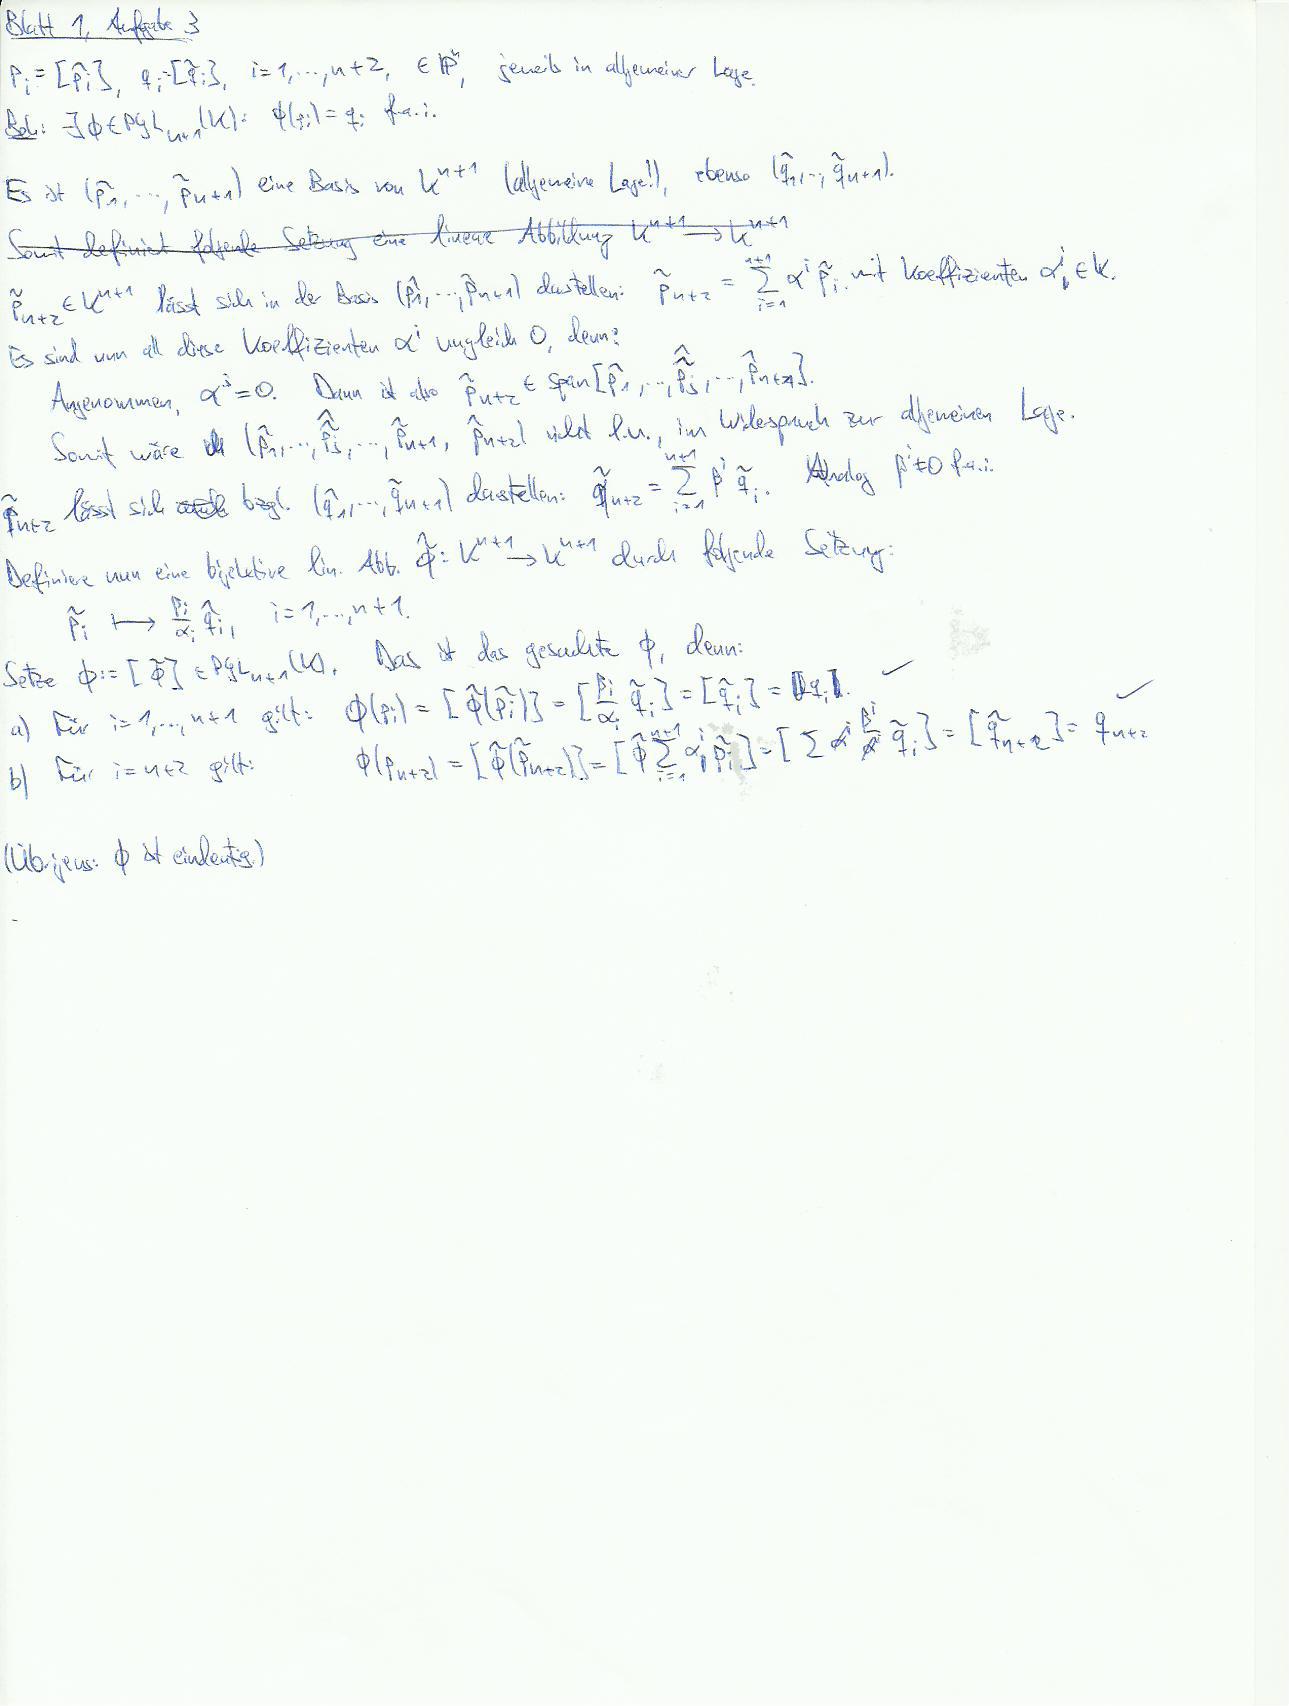 Blatt 1, Aufgabe 3
p_i = [p̃_i], q_i = [q̃_i], i=1,...,n+2, ∈ ℙ^n, jeweils in allgemeiner Lage.
Beh: ∃ ϕ ∈ PGL_{n+1}(K): ϕ(p_i) = q_i f.a. i.
Es ist (p̃_1, ..., p̃_{n+1}) eine Basis von K^{n+1} (allgemeine Lage!), ebenso (q̃_1, .., q̃_{n+1}).
Somit definiert folgende Setzung eine lineare Abbildung K^{n+1} → K^{n+1}
p̃_{n+2} ∈ K^{n+1} lässt sich in der Basis (p̃_1, ..., p̃_{n+1}) darstellen: p̃_{n+2} = ∑_{i=1}^{n+1} α^i p̃_i mit Koeffizienten α^i ∈ K.
Es sind nun all diese Koeffizienten α^i ungleich 0, denn:
Angenommen, α^j = 0. Dann ist also p̃_{n+2} ∈ span[p̃_1, ..., p̃̂_j, ..., p̃_{n+1}].
Somit wäre (p̃_1, ..., p̃̂_j, ..., p̃_{n+1}, p̃_{n+2}) nicht l.u., im Widerspruch zur allgemeinen Lage.
q̃_{n+2} lässt sich bzgl. (q̃_1, ..., q̃_{n+1}) darstellen: q̃_{n+2} = ∑_{i=1}^{n+1} β^i q̃_i. Analog β^i ≠ 0 f.a. i.
Definiere nun eine bijektive lin. Abb. ϕ̃: K^{n+1} → K^{n+1} durch folgende Setzung:
p̃_i ↦ β_i/α_i q̃_i, i=1,...,n+1.
Setze ϕ := [ϕ̃] ∈ PGL_{n+1}(K). Das ist das gesuchte ϕ, denn:
a) Für i=1,...,n+1 gilt: ϕ(p_i) = [ϕ̃(p̃_i)] = [β_i/α_i q̃_i] = [q̃_i] = q_i. ✓
b) Für i=n+2 gilt: ϕ(p_{n+2}) = [ϕ̃(p̃_{n+2})] = [ϕ̃ ∑_{i=1}^{n+1} α^i p̃_i] = [∑ α^i β^i/α^i q̃_i] = [q̃_{n+2}] = q_{n+2} ✓
(Übrigens: ϕ ist eindeutig.)